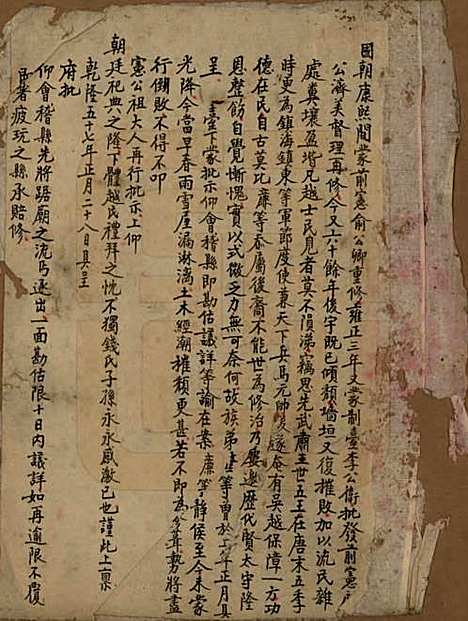 國朝康熙間蒙前憲俞公卿重修雍正三年又蒙制臺李公衛批發前憲
公濟美督理再修今又六十餘年後宇既已傾頹墻垣又復摧敗加以流民雜
處糞壤盈堦凡越士民見者莫不隕涕竊思先武肅王世五王在唐末五季
時更為鎮海鎮東等軍節度使兼天下兵馬元帥後遂奄有吳越保障一方功
德在民自古莫比廉等忝屬後裔不能世為修治乃屢邀歷代賢太守隆
恩整飭自覺慚愧實以式微乏力無可奈何故族弟士等曾於上年正月具
呈 臺蒙批示仰會稽縣即勘估議詳等諭在案廉等靜候至今未蒙
光降今當早春雨雪屋漏淋漓土木經潮摧頹更甚若不即為公葺勢將盡
行倒敗不得不叩
憲公祖大人再行批示上仰
朝廷祀典之隆下體越民禮拜之忱不獨錢氏子孫永永感激已也謹此上稟
乾隆五十七年正月二十八日具呈
府批
仰會稽縣先將踞廟之流丐逐出一面勘估限十日內議詳如再逾限不覆
者疲玩之縣承賠修